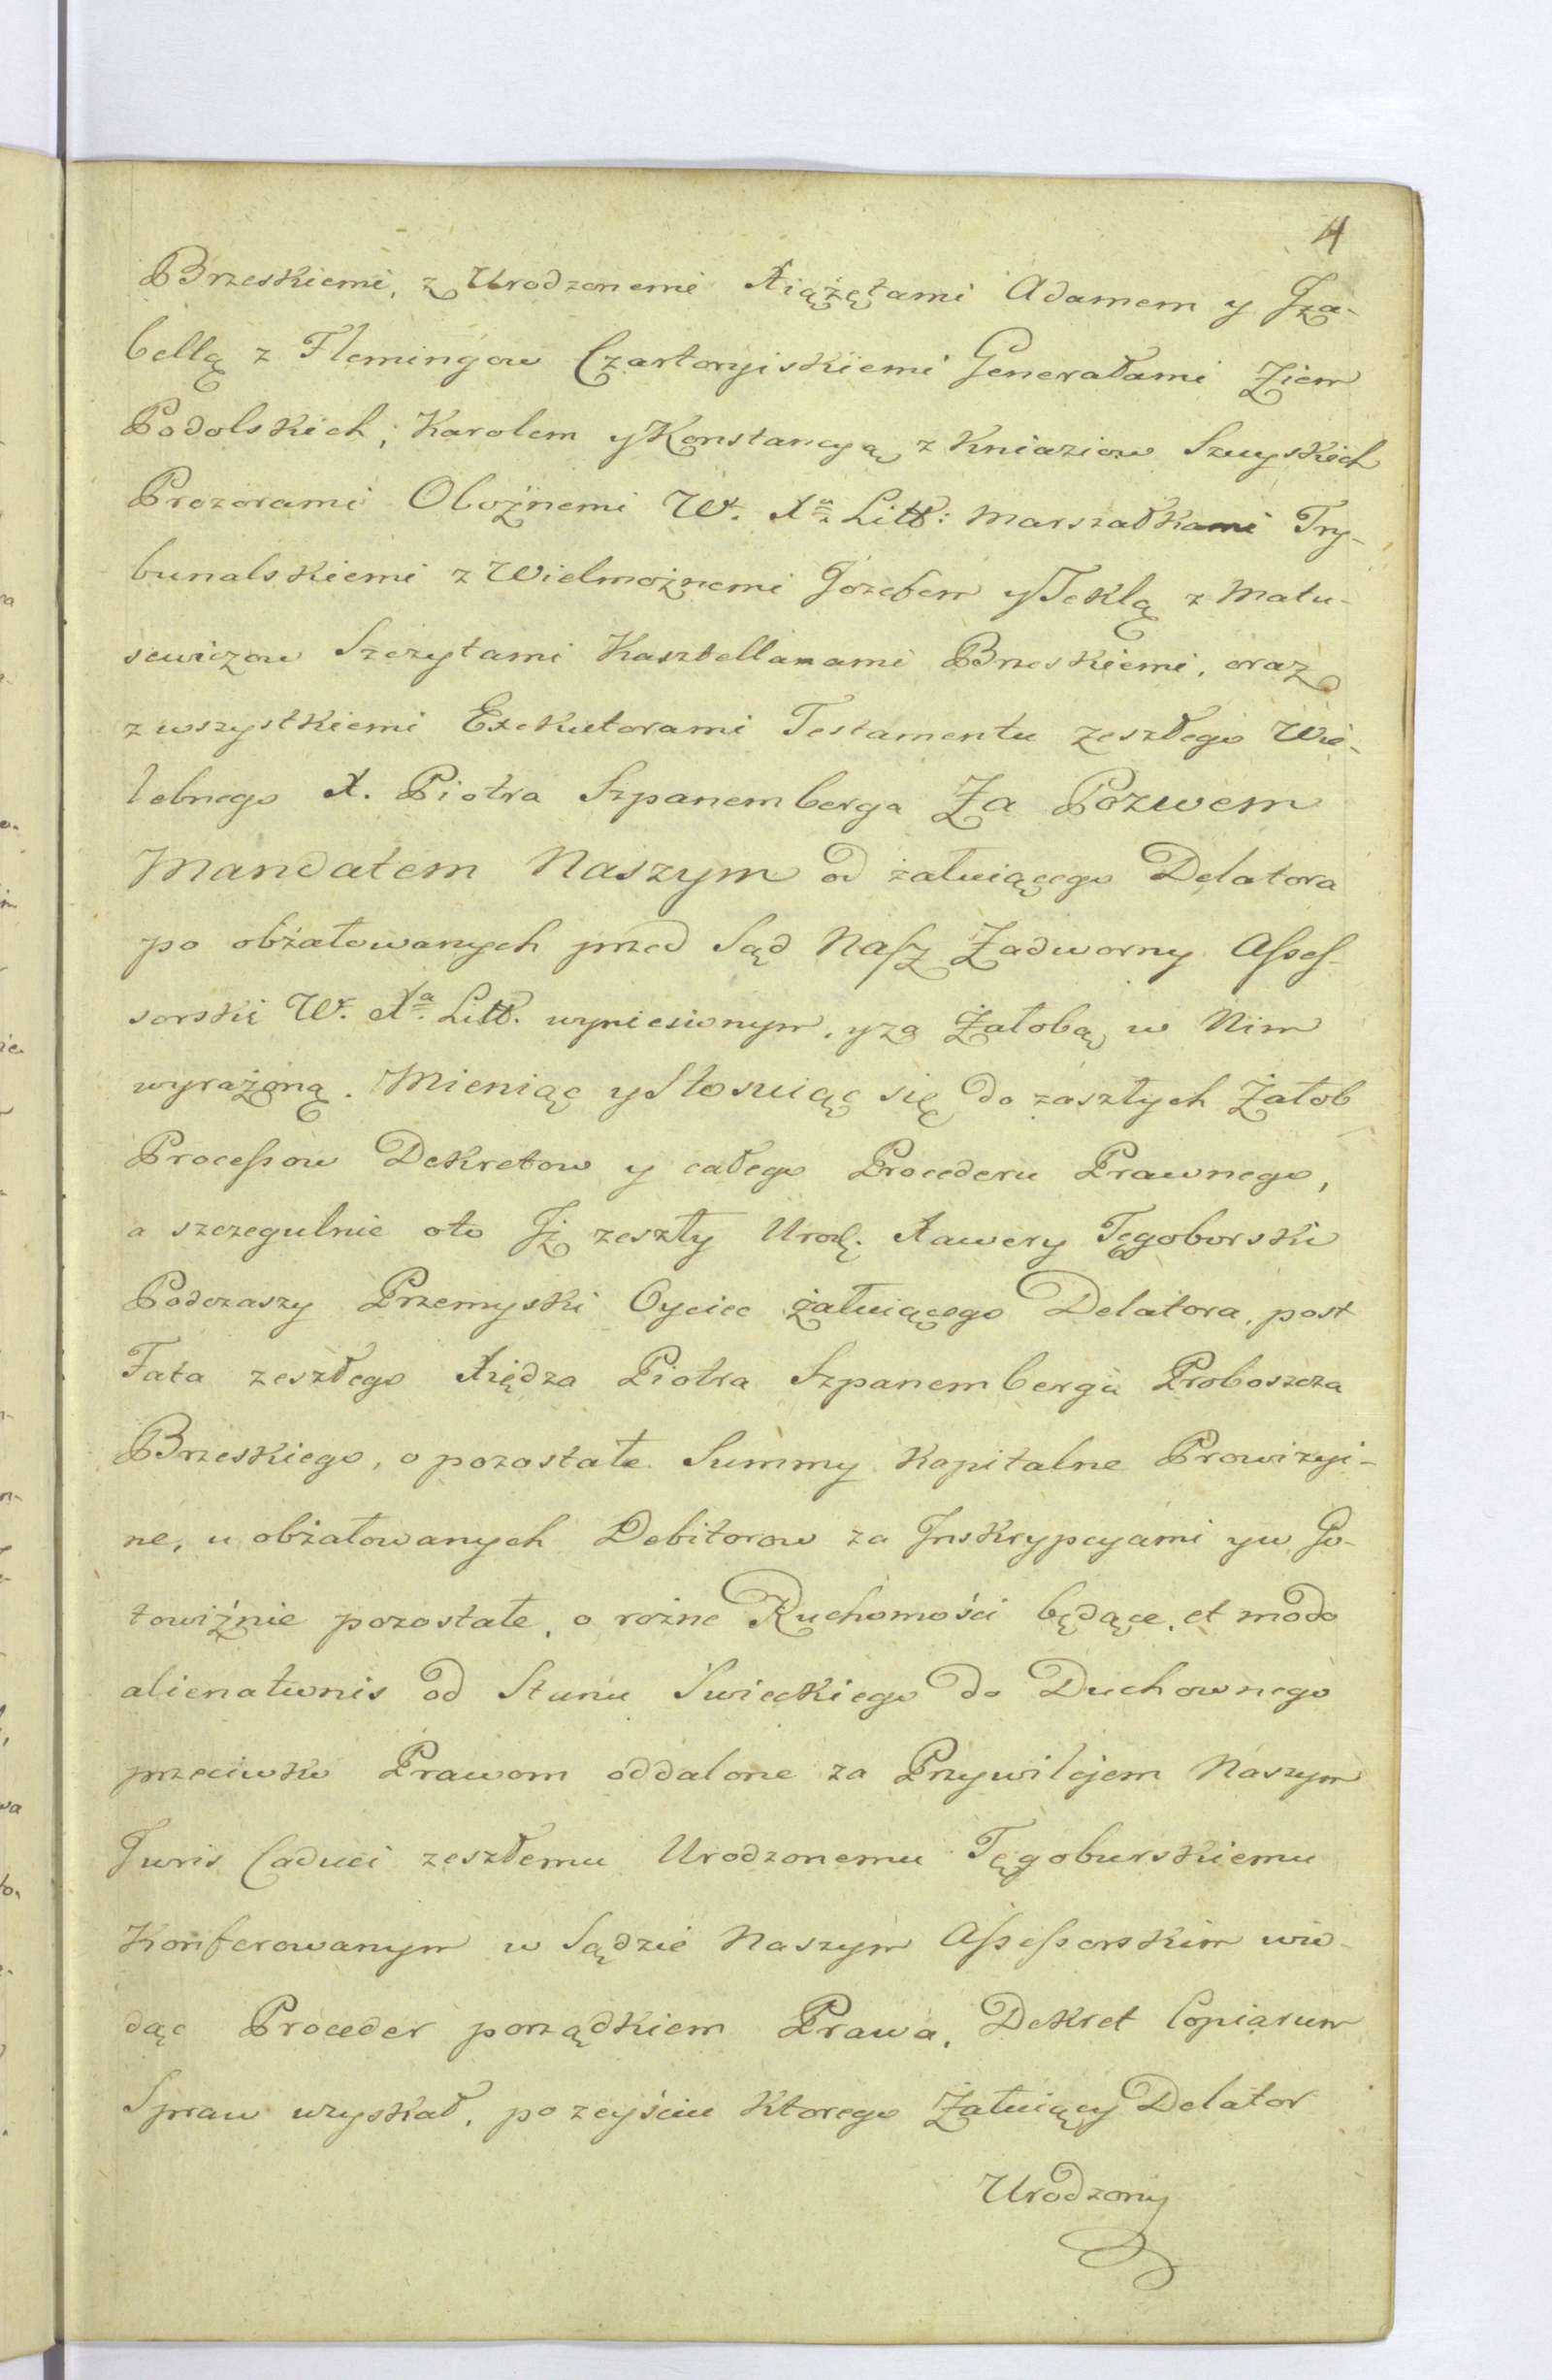 4
Brzeskiemi, z Urodzonemi Xiążętami Adamem y Jza-
bellą z Flemingow Czartoryiskiemi Generałami Ziem
Podolskich, Karolem y Konstancyą z Kniaziow Szuyskich
Prozorami Oboźnemi W. Xa Litt: Marszałkami Try-
bunalskiemi z Wielmożnemi Jozefem y Teklą z Matu-
sewiczow Szczytami Kasztellanami Brzeskiemi, oraz
z wszystkiemi Exekutorami Testamentu zeszłego Wie-
lebnego X. Piotra Szpanemberga Za Pozwem
Mandatem Naszym od żałuiącego Delatora
po obżałowanych przed Sąd Nasz Zadworny Assess-
sorski W. Xa. Litt. wyniesionym, y za Żałobą w Nim
wyrażoną. Mieniąc y Stosuiąc się do zaszłych Żałob
Processow Dekretow y całego Procederu Prawnego,
a szczegulnie oto Jż zeszły Urodz. Xawery Tęgoborski
Podczaszy Przemyski Oyciec żałuiącego Delatora, post
Fata zeszłego Xiędza Piotra Szpanemberga Proboszcza
Brzeskiego, o pozostałe Summy Kapitalne Prowizyi-
ne, u obżałowanych Debitorow za Jnskrypcyami y w Go-
towiźnie pozostałe, o rożne Ruchomości będące, et modo
alienationis od Stanu Swieckiego do Duchownego
przeciwko Prawom oddalone za Przywilejem Naszym
Juris Caduci zeszłemu Urodzonemu Tęgoburskiemu
Konferowanym w Sądzie Naszym Assessorskim wio-
dąc Proceder porządkiem Prawa, Dekret Copiarum
Spraw uzyskał, po zeyściu ktorego Żałuiący Delator
Urodzony